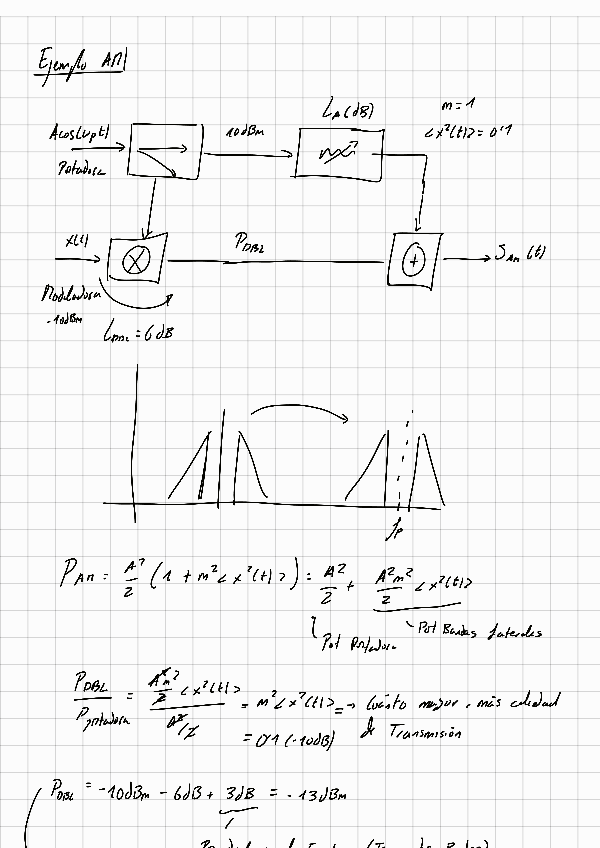 Ejemplo AM
L_A(dB)
m = 1
Acos(ωpt)
10dBm
<x²(t)> = 0'1
Portadora
x(t)
P_DBL
S_AM(t)
Moduladora
-10dBm
L_DBL = 6dB
fp
P_AM = A²/2 (1 + m²<x²(t)>) = A²/2 + A²m²/2 <x²(t)>
Pot Portadora
Pot Bandas laterales
P_DBL / P_portadora = (A²m²/2 <x²(t)>) / (A²/2) = m²<x²(t)> => Cuánto mayor, más calidad
= 0'1 (-10dB) de Transmisión
P_DBL = -10dBm - 6dB + 3dB = -13dBm